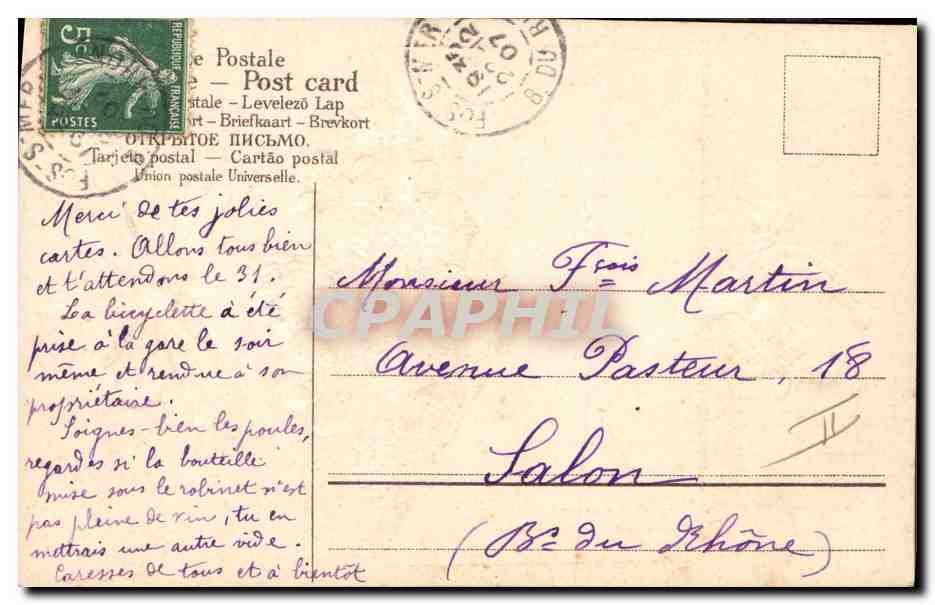 5c
REPUBLIQUE FRANÇAISE
POSTES
e Postale
e — Post card
stale – Levelezö Lap
ort – Briefkaart – Brevkort
ОТКРЫТОЕ ПИСЬМО.
Tarjeta postal — Cartão postal
Union postale Universelle.
FOS-S-MER
B. DU R
07
FOS-S-MER
Merci de tes jolies
cartes. Allons tous bien
et t'attendons le 31.
La bicyclette a été
prise à la gare le soir
même et rendue à son
propriétaire.
Soignes-bien les poules,
regardes si la bouteille
mise sous le robinet n'est
pas pleine de vin, tu en
mettrais une autre vide.
Caresses de tous et à bientôt
Monsieur Fçois Martin
Avenue Pasteur, 18
Salon
(Bs. du Rhône)
II
CPAPHIL